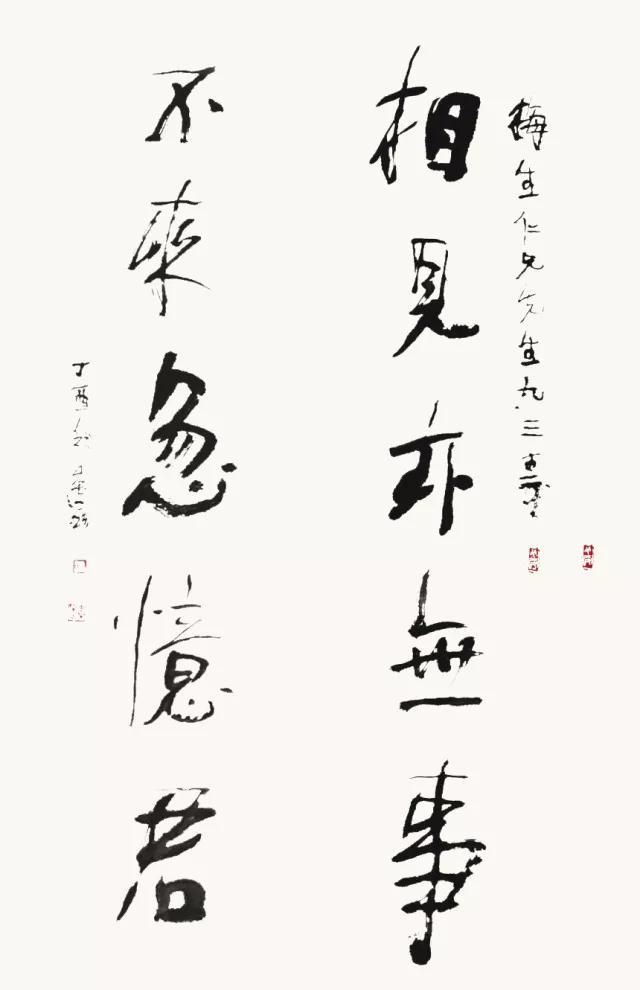 梅生仁兄先生九三
相見亦無事
不來忽憶君
丁酉秋